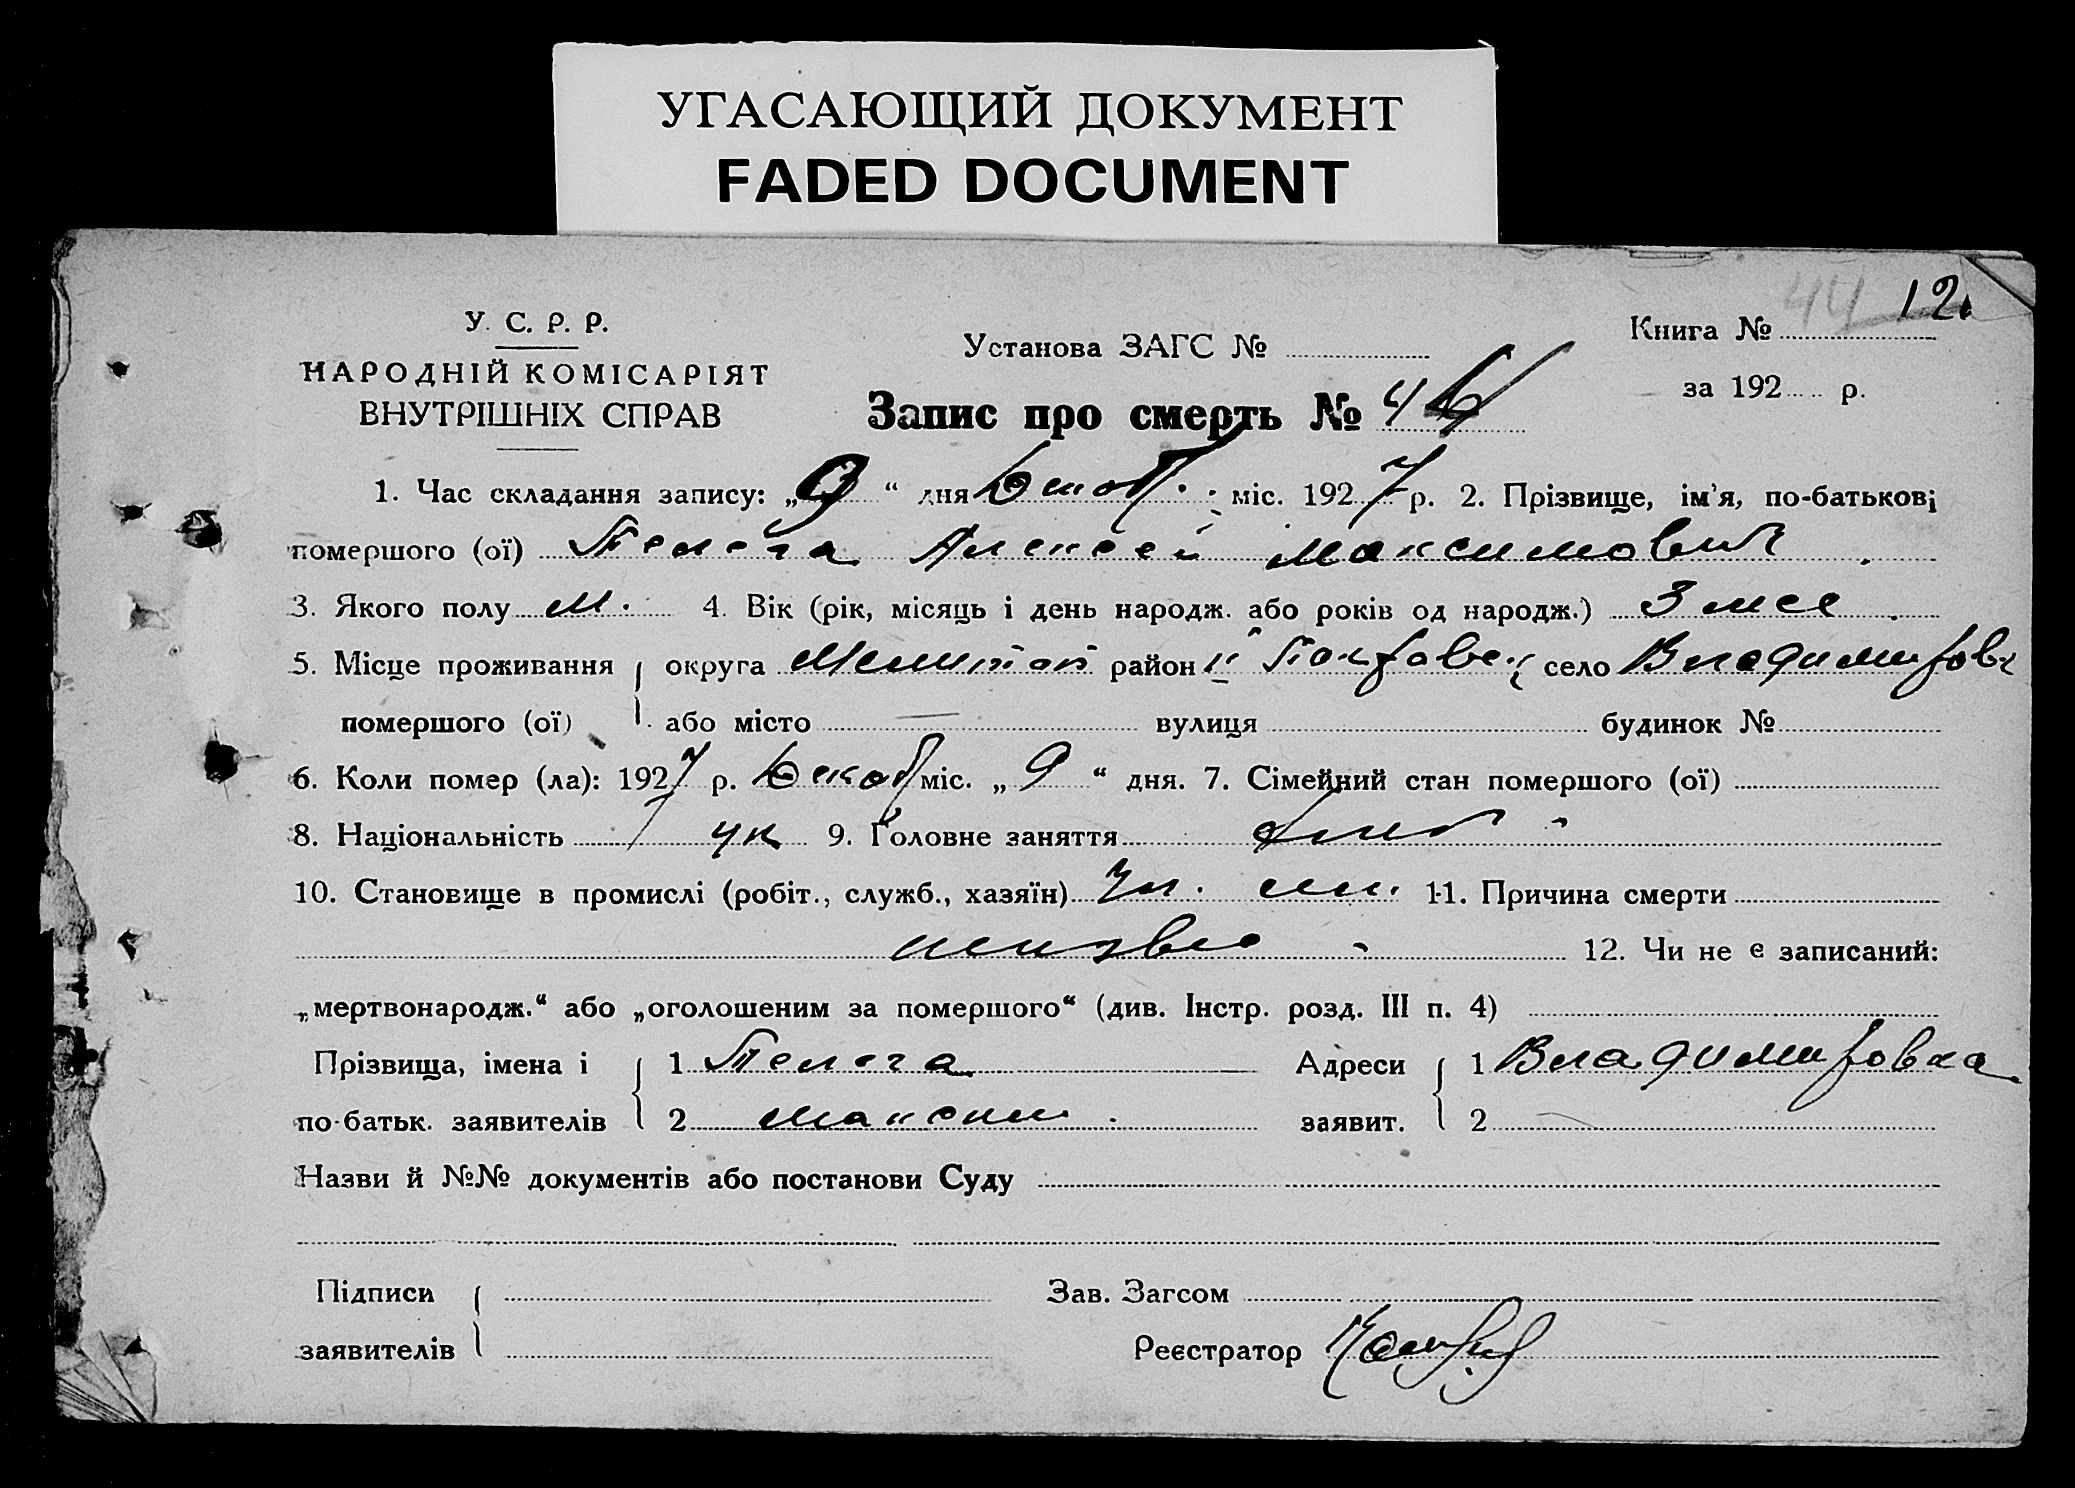 УГАСАЮЩИЙ ДОКУМЕНТ
FADED DOCUMENT
44 12
У. С. Р. Р.
НАРОДНІЙ КОМІСАРІЯТ
ВНУТРІШНІХ СПРАВ
Установа ЗАГС №
Книга №
за 192 р.
Запис про смерть №
1. Час складання запису: „9“ дня міс. 1927 р. 2. Прізвище, ім’я, по-батькові
помершого (ої) Телега Алексей Максимович
3. Якого полу м. 4. Вік (рік, місяць і день народж. або років од народж.) 3 мес
5. Місце проживання округа Мелитоп район Покровск село Владимировк
помершого (ої) або місто — вулиця будинок №
6. Коли помер (ла): 1927 р. міс. „9“ дня. 7. Сімейний стан помершого (ої)
8. Національність ук 9. Головне заняття хлеб
10. Становище в промислі (робіт., служб., хазяїн) 11. Причина смерти
12. Чи не є записаний:
„мертвонародж.“ або „оголошеним за помершого“ (див. Інстр. розд. III п. 4)
Прізвища, імена і 1 Телега Адреси 1 Владимировка
по-батьк. заявителів 2 Максим заявит. 2
Назви й №№ документів або постанови Суду
Підписи Зав. Загсом
заявителів Реєстратор